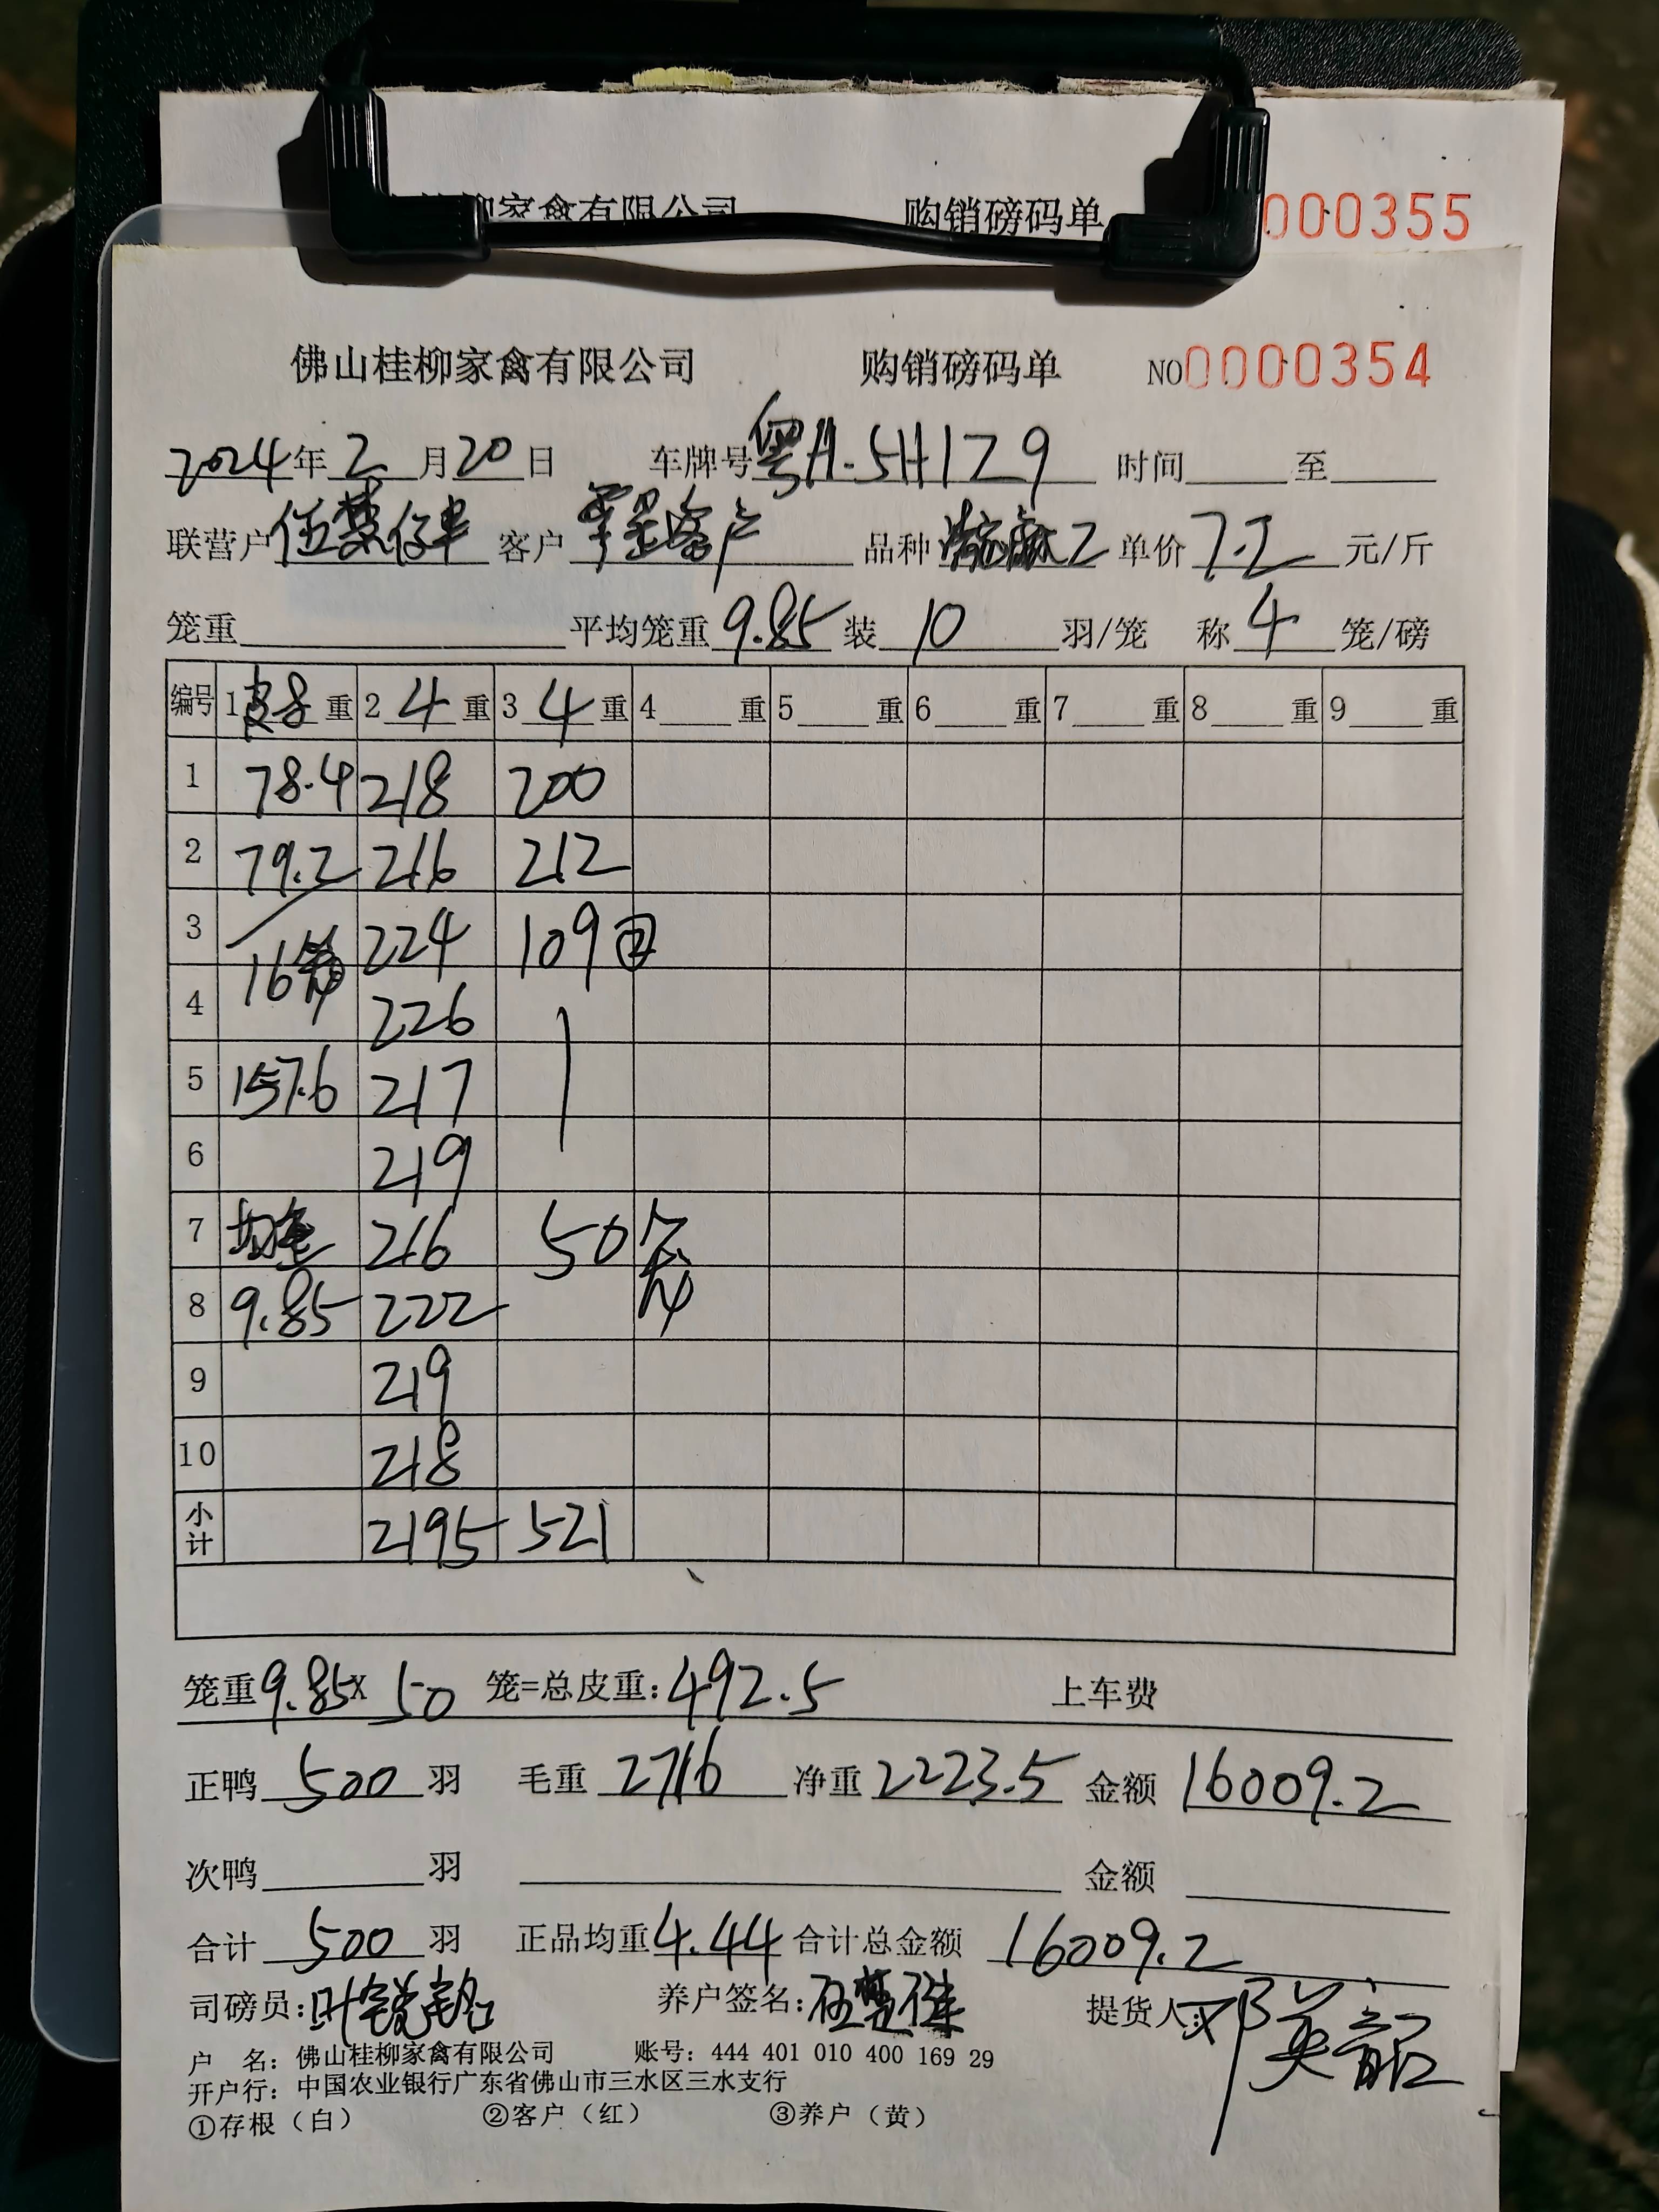 家禽有限公司 购销磅码单 000355
佛山桂柳家禽有限公司 购销磅码单 NO0000354
2024年2月20日 车牌号粤A.5H1Z9 时间 至
联营户 客户 品种 单价7.2元/斤
笼重 平均笼重9.85装10羽/笼 称4笼/磅
编号 1皮8重 2 4重 3 4重 4 重 5 重 6 重 7 重 8 重 9 重
1 78.4 218 200
2 79.2 216 212
3 16笼 224 109②
4 226
5 157.6 217
6 219
7 均重 216 50笼
8 9.85 222
9 219
10 218
小计 2195 521
笼重9.85X50笼=总皮重:492.5 上车费
正鸭500羽 毛重2716 净重2223.5 金额16009.2
次鸭 羽 金额
合计500羽 正品均重4.44 合计总金额16009.2
司磅员: 养户签名: 提货人:
户 名: 佛山桂柳家禽有限公司 账号: 444 401 010 400 169 29
开户行: 中国农业银行广东省佛山市三水区三水支行
①存根（白） ②客户（红） ③养户（黄）